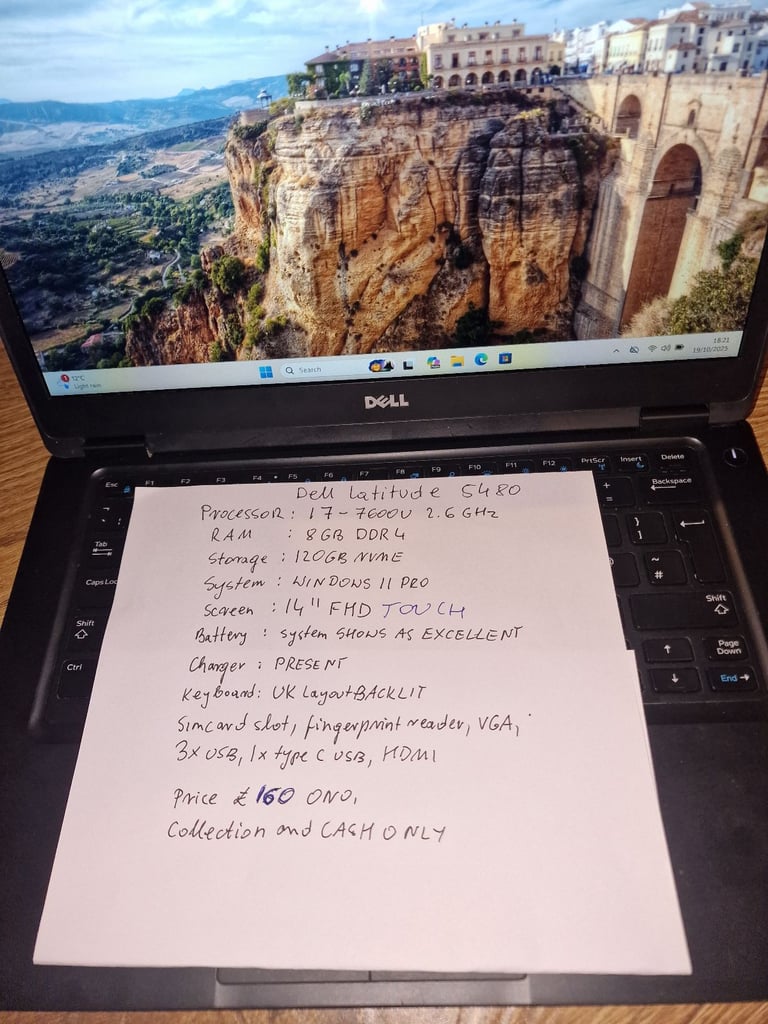 12°C
Light rain
Search
18:21
19/10/2025
DELL
Esc F1 F2 F3 F4 F5 F6 F7 F8 F9 F10 F11 F12 PrtScr Insert Delete
Backspace
Tab
Caps Loc
Shift
Shift
Ctrl
Page Down
End
Dell Latitude 5480
Processor: i7-7600U 2.6 GHz
RAM : 8GB DDR4
Storage : 120GB NVME
System : WINDOWS 11 PRO
Screen : 14" FHD TOUCH
Battery : system SHOWS AS EXCELLENT
Charger : PRESENT
Keyboard: UK Layout BACKLIT
Simcard slot, fingerprint reader, VGA,
3x USB, 1x type C USB, HDMI
Price £160 ONO,
Collection and CASH ONLY